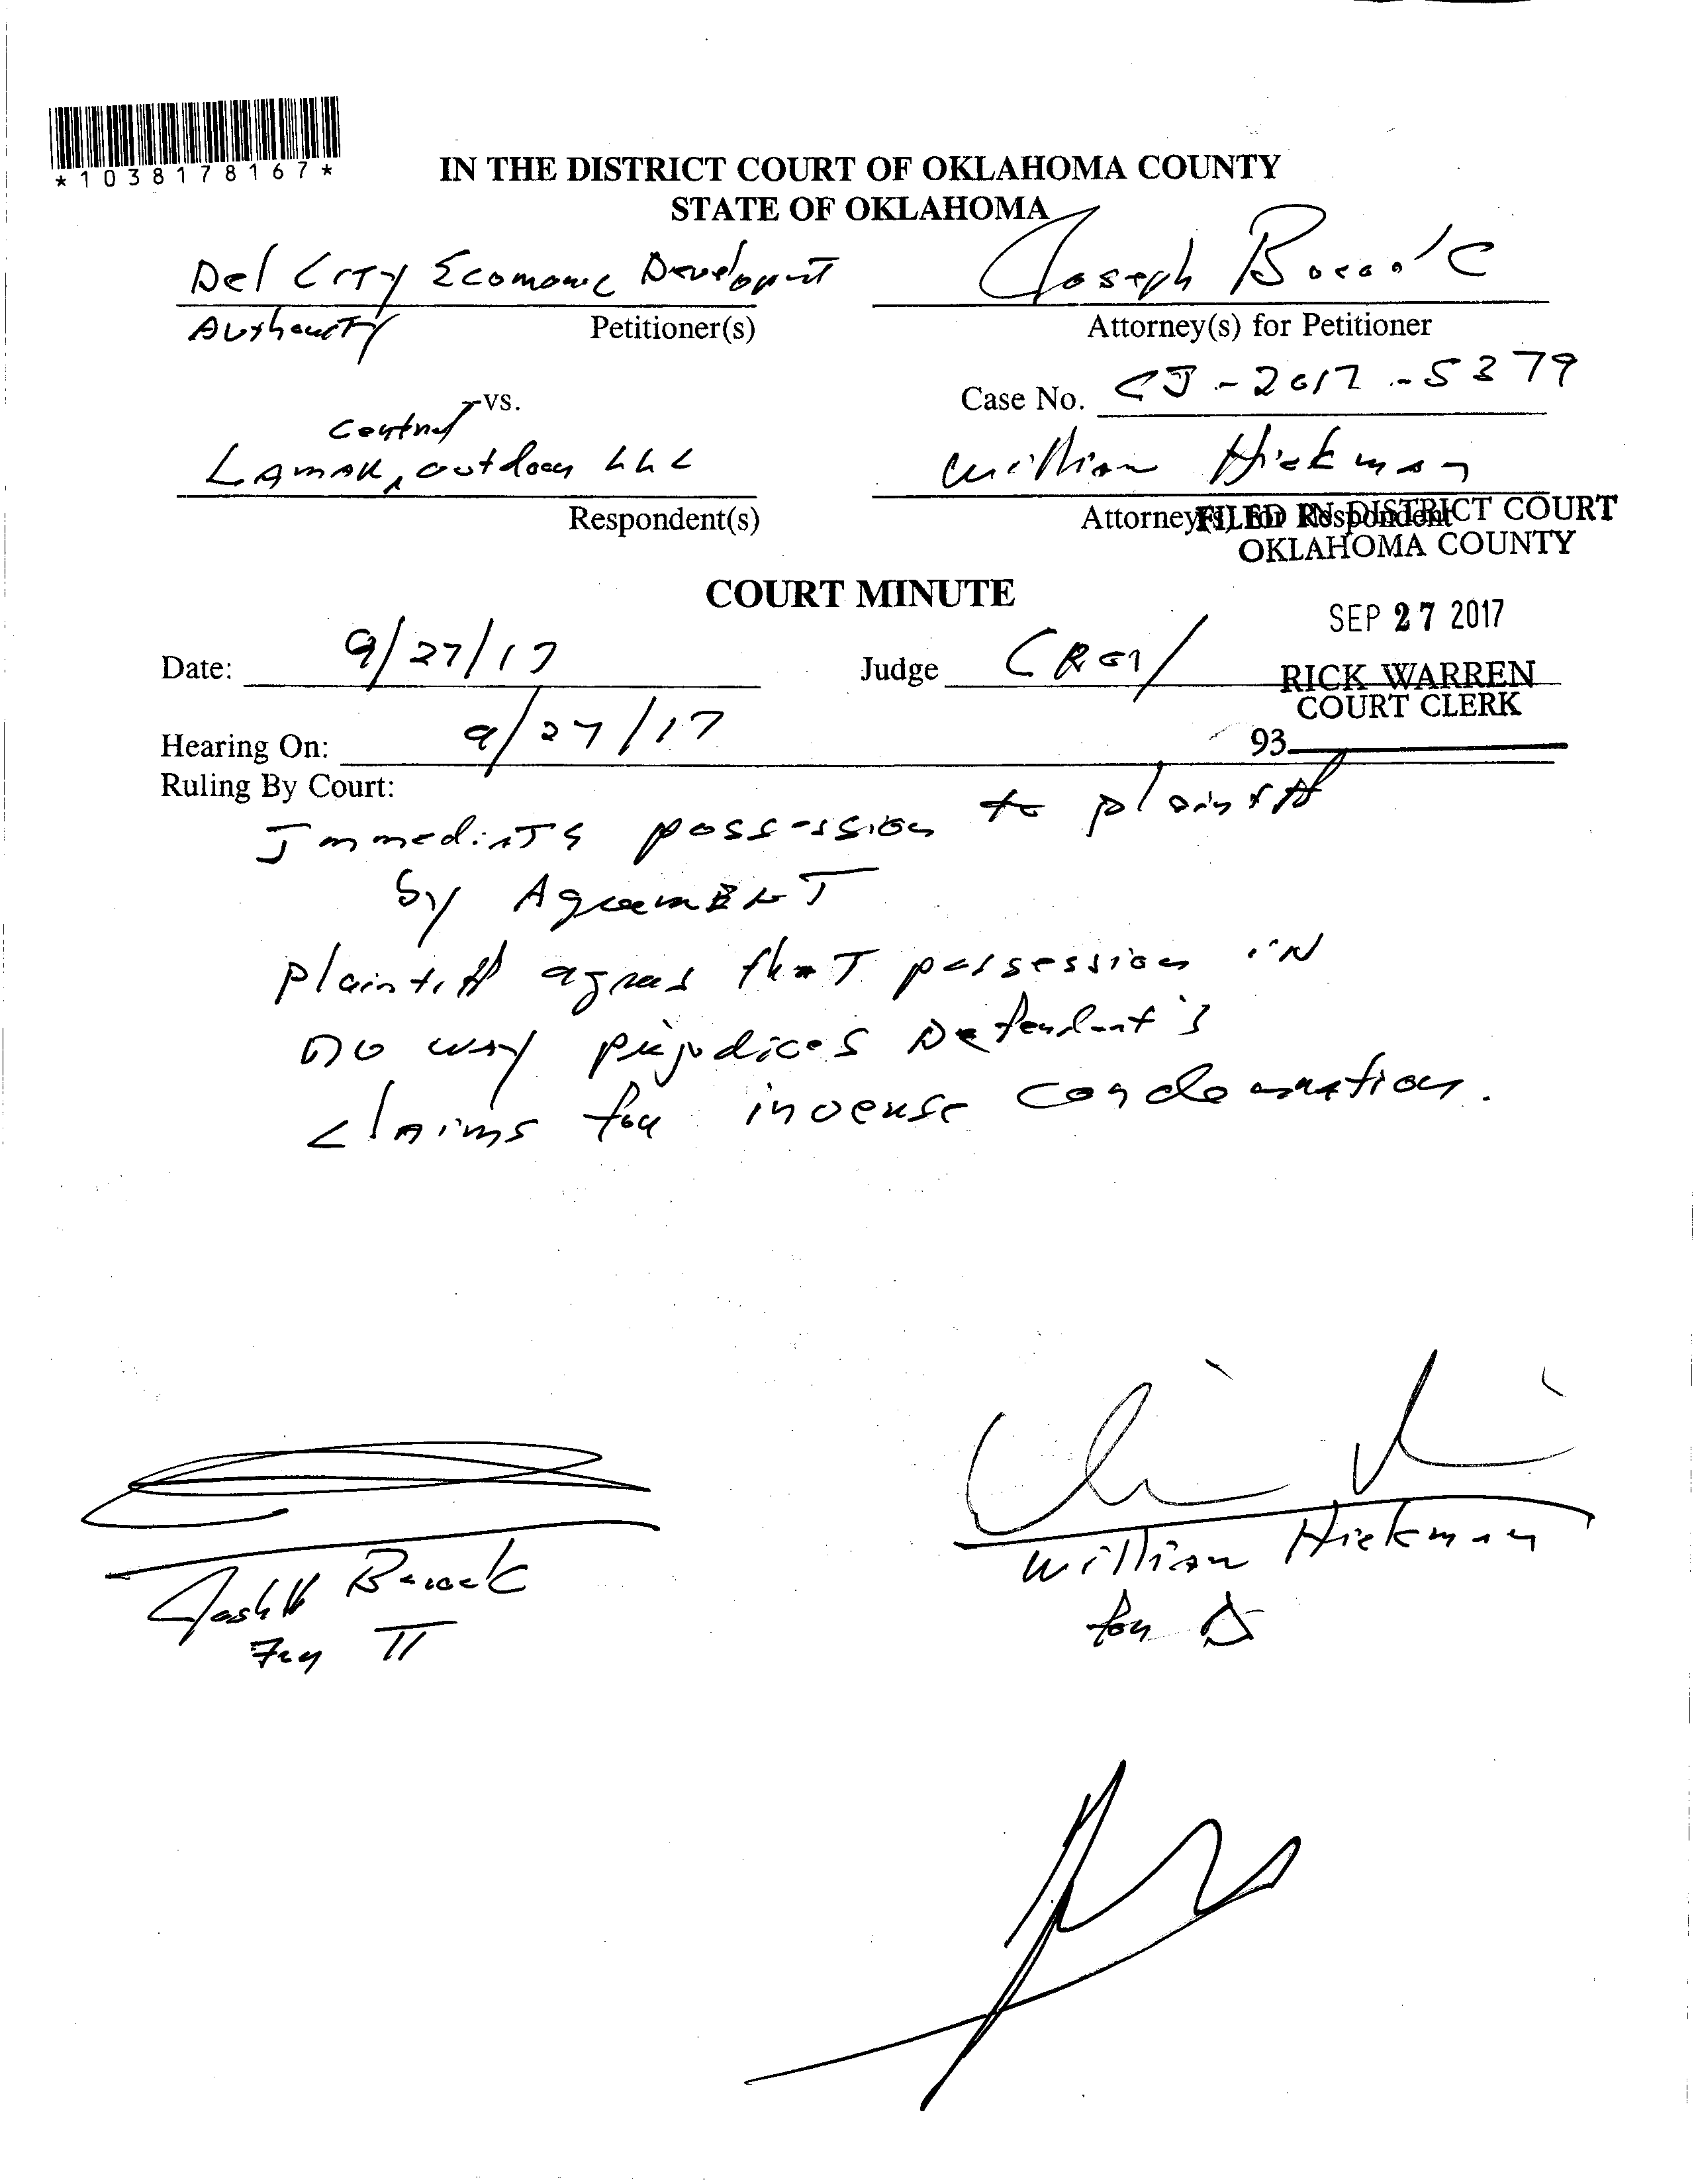 *1038178167*
IN THE DISTRICT COURT OF OKLAHOMA COUNTY
STATE OF OKLAHOMA
Del City Economic Development
Authority
Petitioner(s)
Joseph Bocock
Attorney(s) for Petitioner
-vs.
Case No. CJ-2017-5379
Central
Lamar outdoor LLC
Respondent(s)
William Hickman
Attorney(s) for Respondent
FILED IN DISTRICT COURT
OKLAHOMA COUNTY
COURT MINUTE
SEP 27 2017
Date: 9/27/17
Judge
RICK WARREN
COURT CLERK
Hearing On: 9/27/17
93
Ruling By Court:
Immediate possession to plaintiff
by Agreement
plaintiff agrees that possession in
no way prejudices Defendant's
claims for inverse condemnation.
Bocock
For π
William Hickman
for Δ